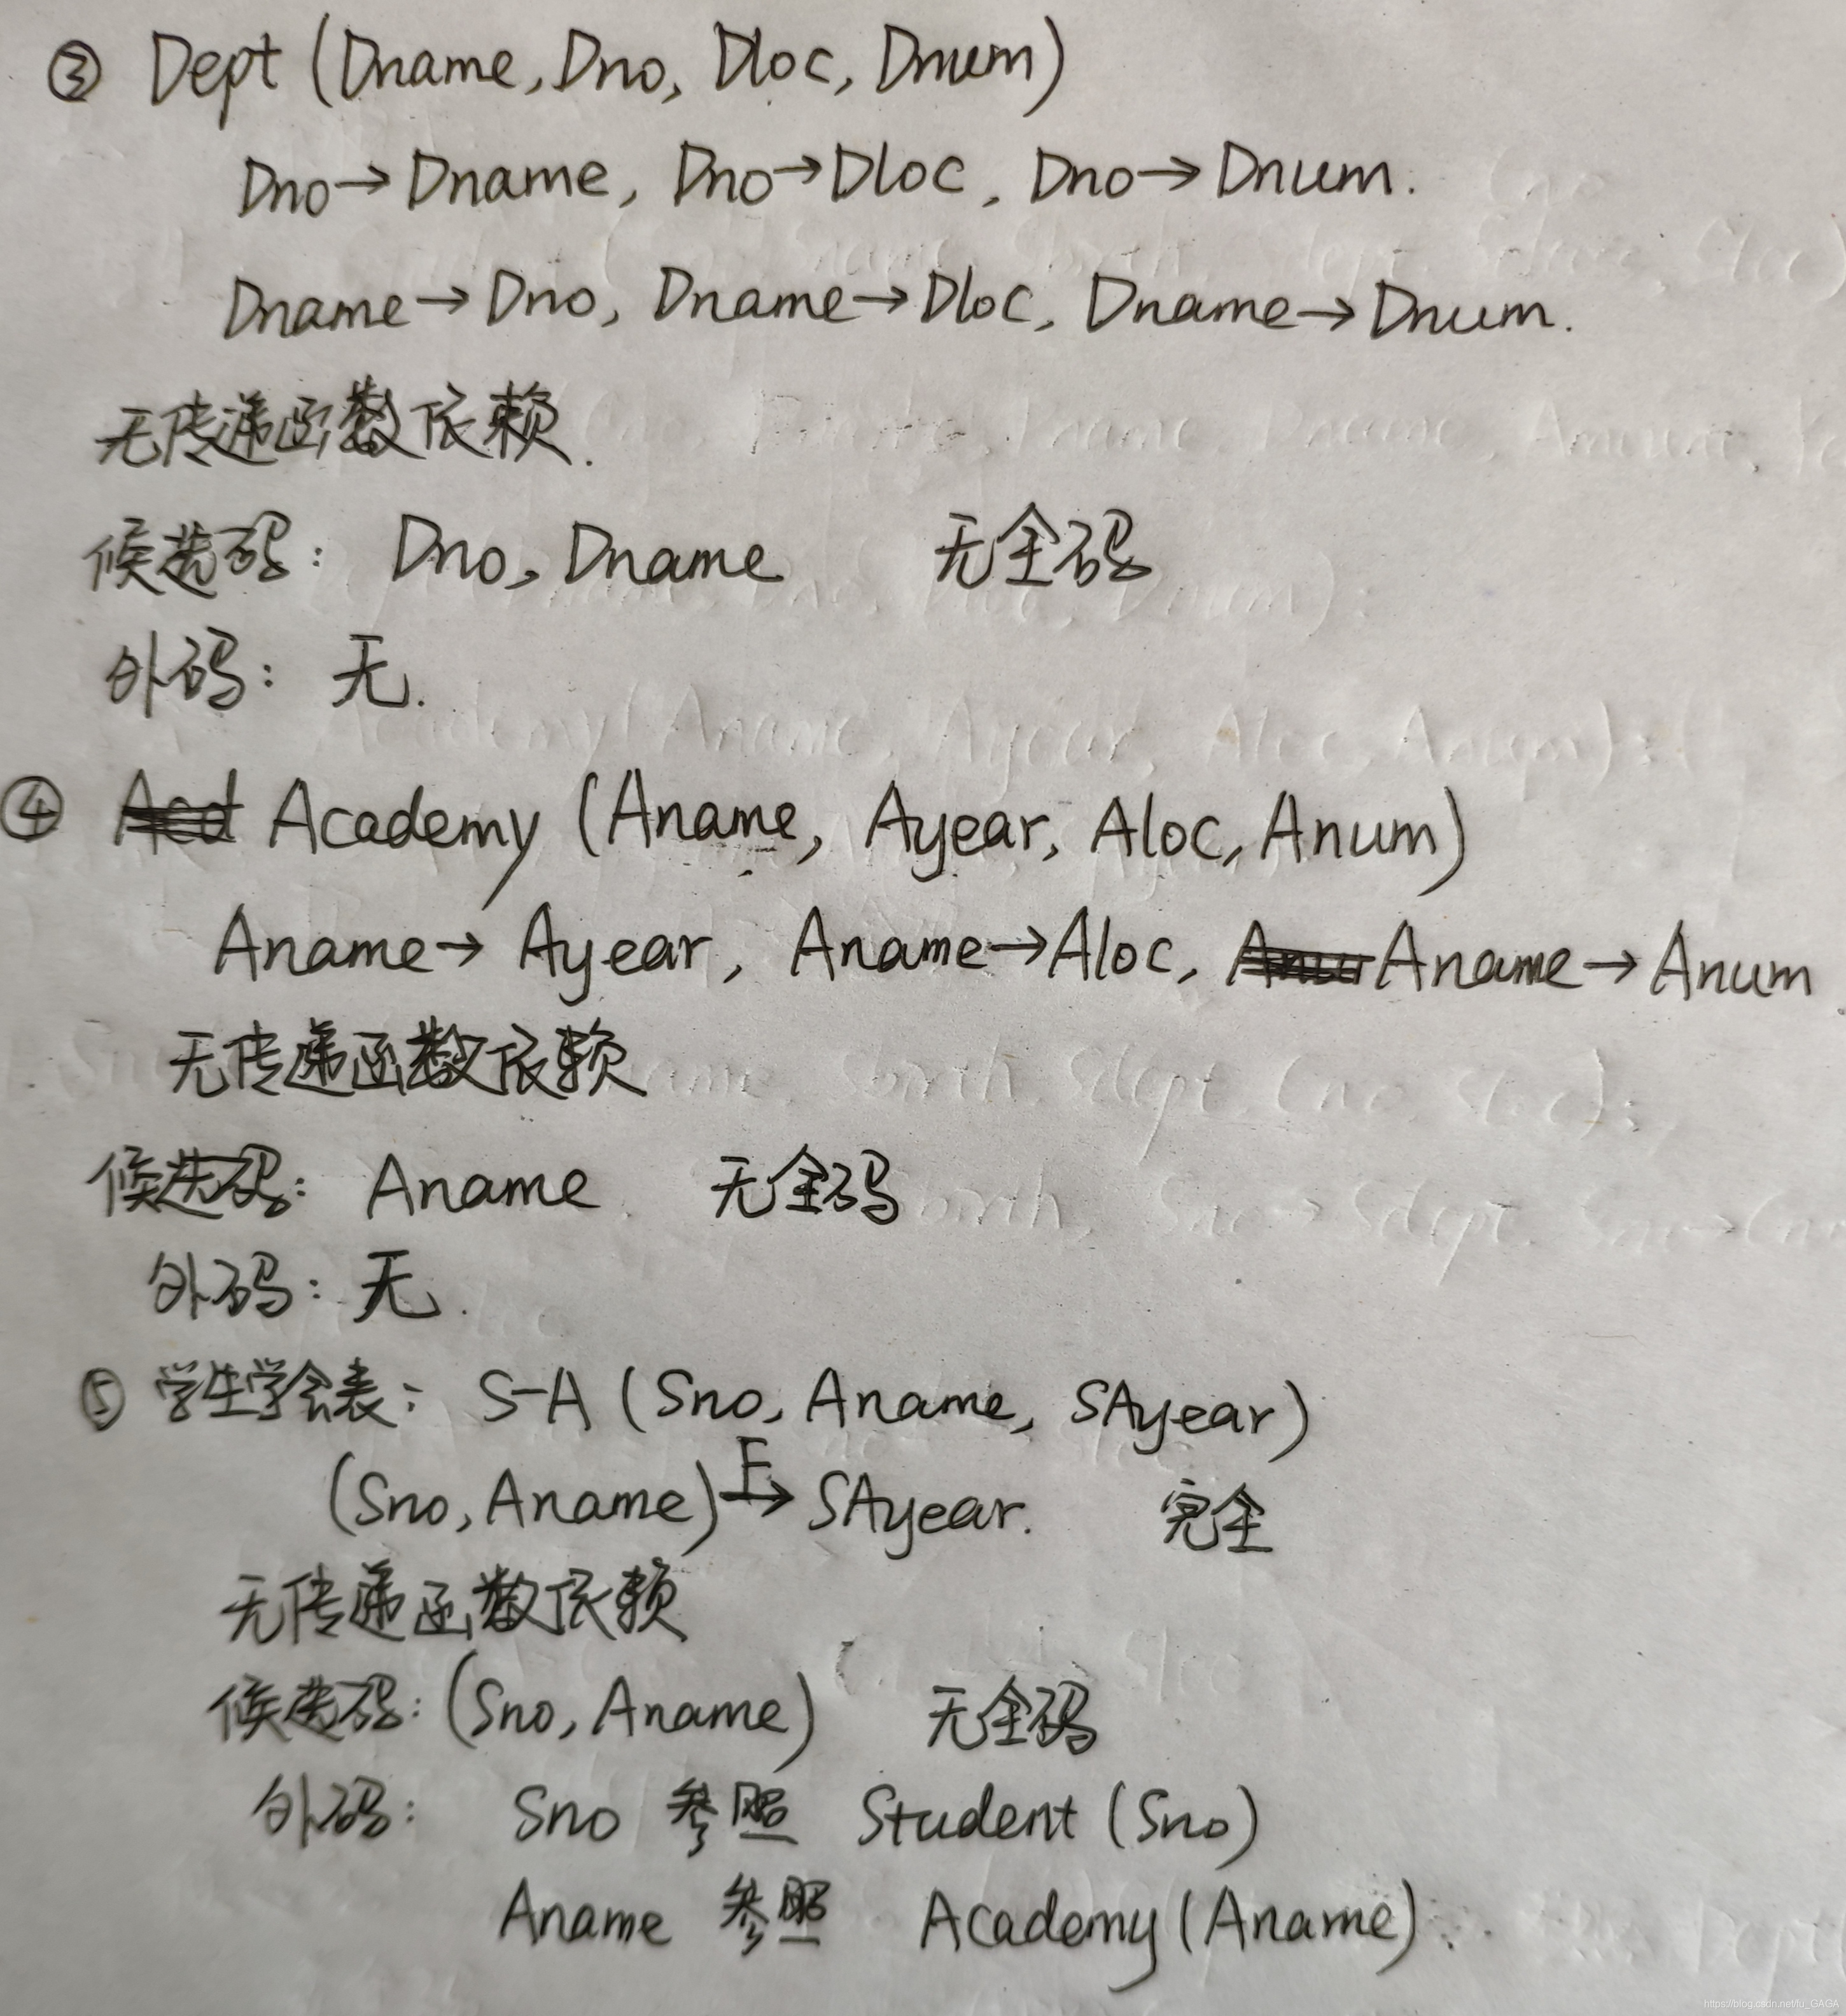 ③ Dept (Dname, Dno, Dloc, Dnum)
Dno→Dname, Dno→Dloc, Dno→Dnum.
Dname→Dno, Dname→Dloc, Dname→Dnum.
无传递函数依赖.
候选码: Dno, Dname 无全码
外码: 无.
④ Academy (Aname, Ayear, Aloc, Anum)
Aname→Ayear, Aname→Aloc, Aname→Anum
无传递函数依赖
候选码: Aname 无全码
外码: 无.
⑤ 学生学会表: S-A (Sno, Aname, SAyear)
(Sno, Aname) F→ SAyear. 完全
无传递函数依赖
候选码: (Sno, Aname) 无全码
外码: Sno 参照 Student (Sno)
Aname 参照 Academy (Aname).
https://blog.csdn.net/fu_GAGA